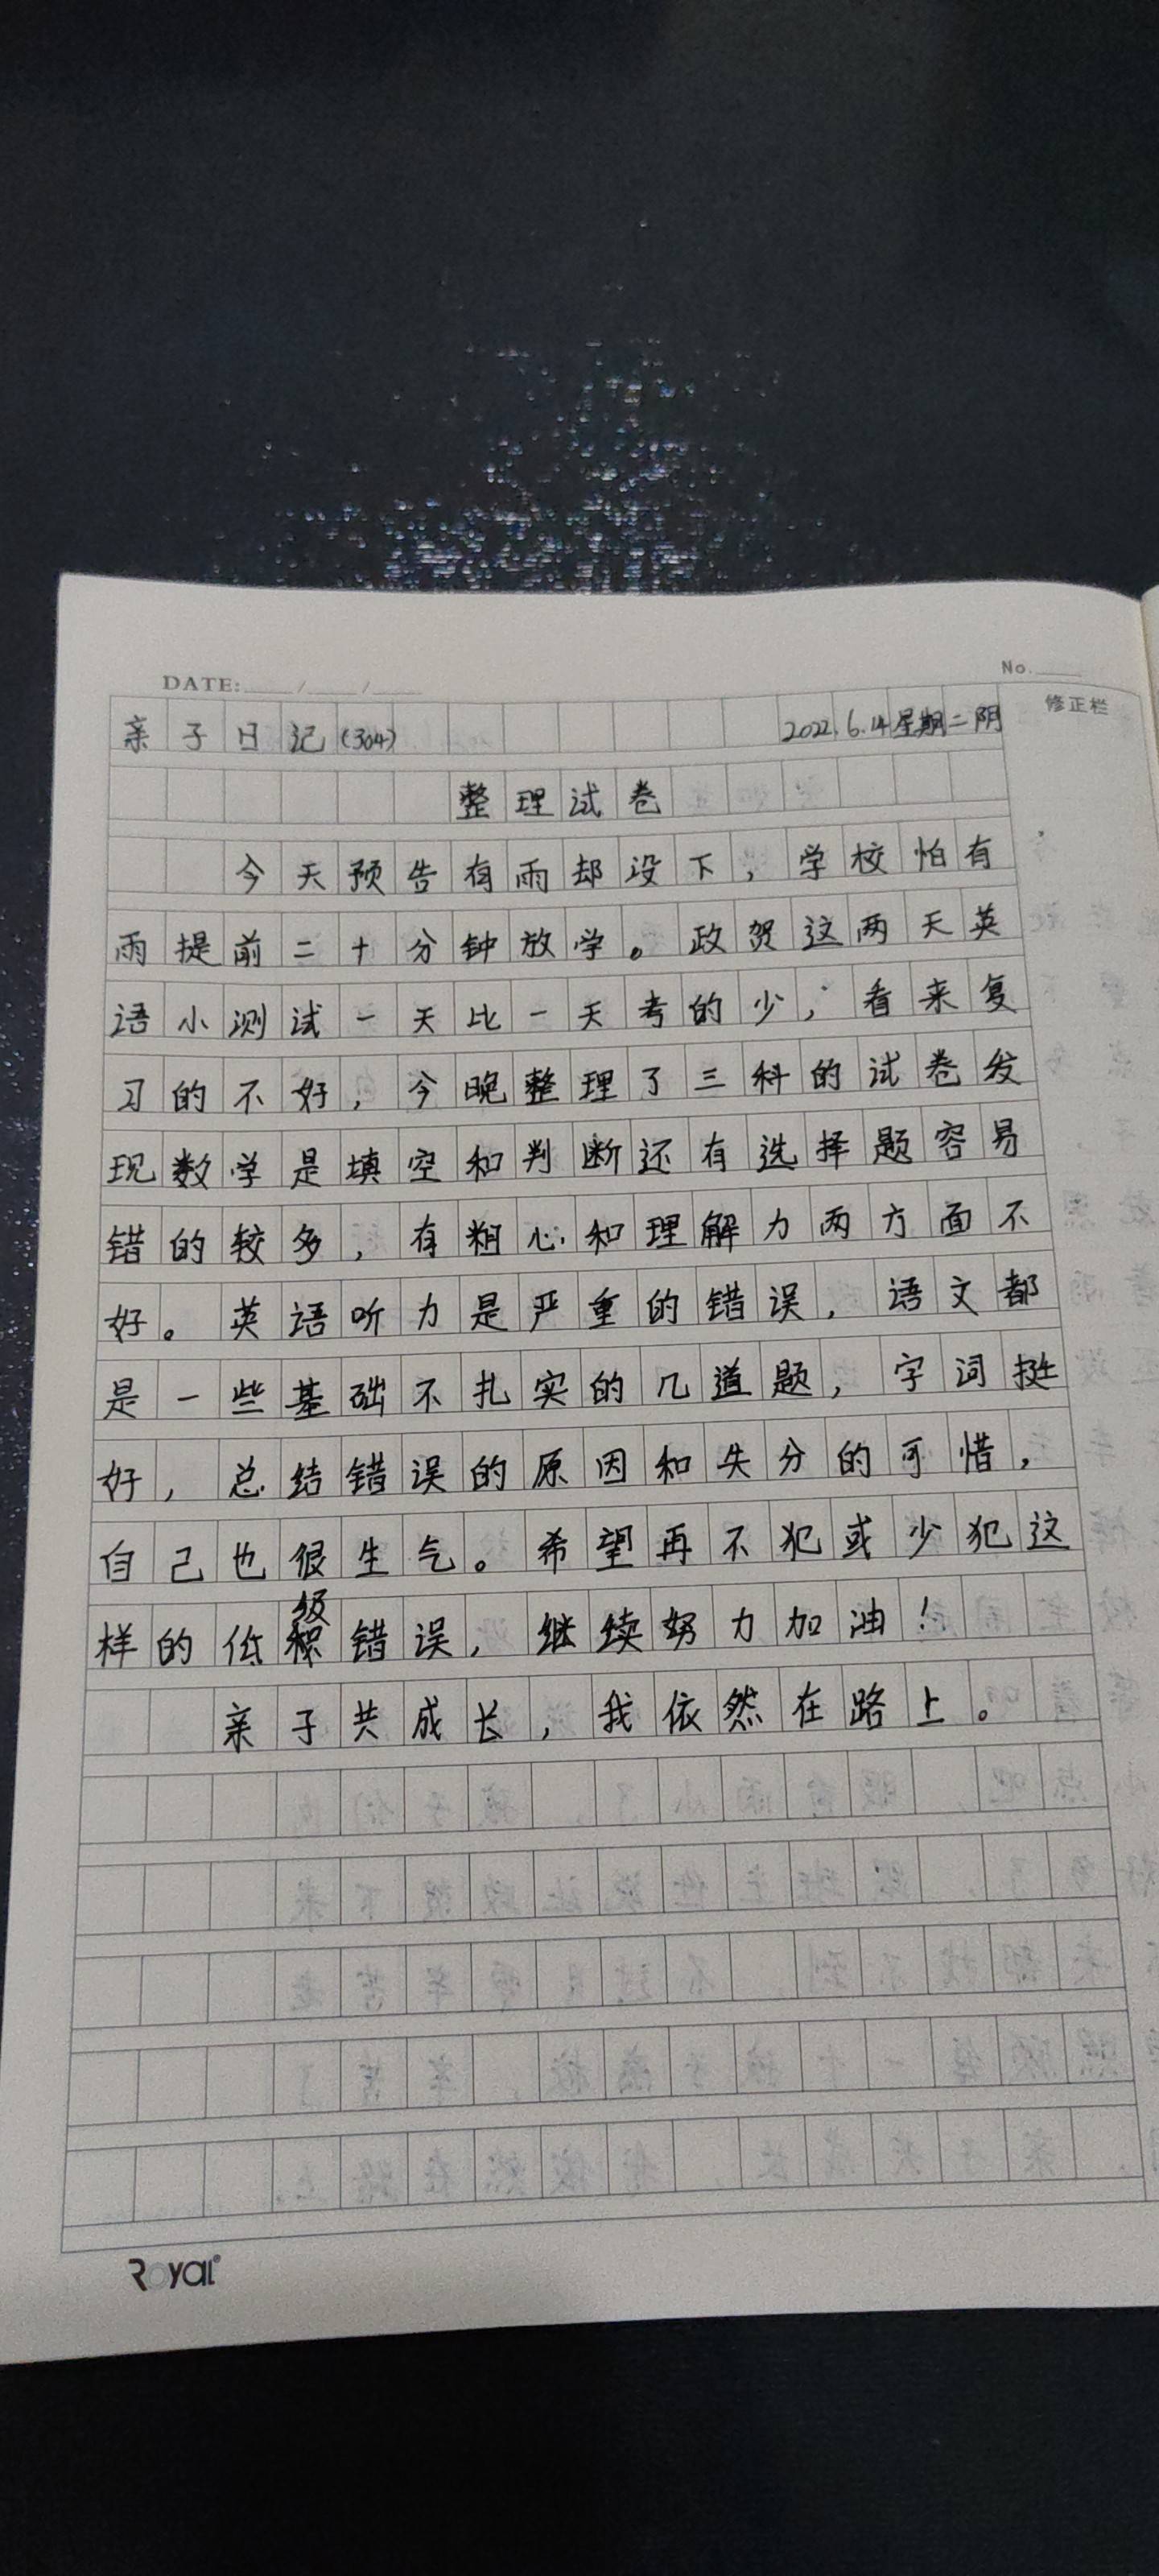 DATE: / /
No.
修正栏
亲子日记(304) 2022.6.14星期二阴
整理试卷
今天预告有雨却没下，学校怕有
雨提前二十分钟放学。政贺这两天英
语小测试一天比一天考的少，看来复
习的不好，今晚整理了三科的试卷发
现数学是填空和判断还有选择题容易
错的较多，有粗心和理解力两方面不
好。英语听力是严重的错误，语文都
是一些基础不扎实的几道题，字词挺
好，总结错误的原因和失分的可惜，
自己也很生气。希望再不犯或少犯这
样的低级错误，继续努力加油！
亲子共成长，我依然在路上。
Royal